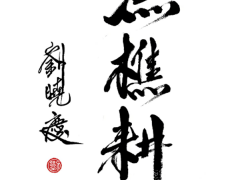 樵耕
劉曉慶